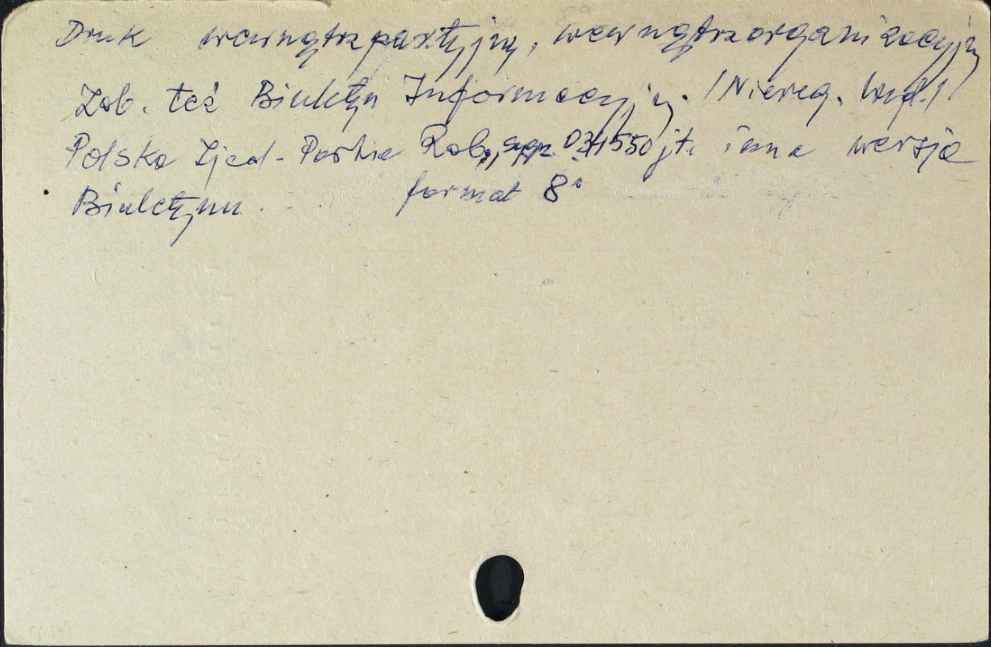 Druk wewnątrzpartyjny, wewnątrzorganizacyjny
Zob. też Biuletyn Informacyjny. /Niereg. Wyd./
Polska Zjed. Partia Rob., sygn. 031550 jt. inna wersja
Biuletynu. format 8°